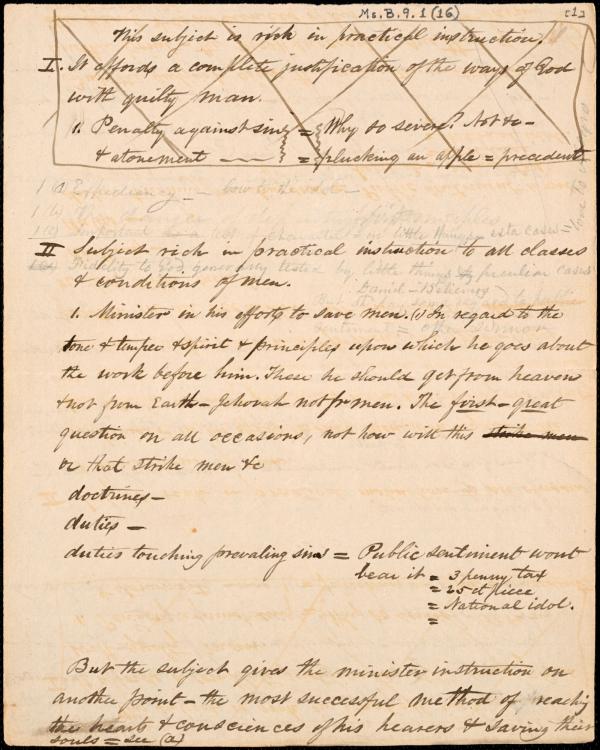 Ms. B. 9. 1 (16) [1]
This subject is rich in practical instruction.
I. It affords a complete justification of the ways of God
with guilty man.
1. Penalty against sin = Why so severe? Not &c -
& atonement = plucking an apple = precedent
1 (a) Expediency -
1 (b)
1 (c) Important
II Subject rich in practical instruction to all classes
Fidelity to God, generally tested by little things & peculiar cases
& conditions of men.
Daniel - Believing
1. Minister in his efforts to save men. (1) In regard to the
sentiment = often
tone & temper & spirit & principles upon which he goes about
the work before him. These he should get from heaven
& not from Earth - Jehovah not fr men. The first - great
question on all occasions, not how will this strike men
or that strike men &c
doctrines -
duties -
duties touching prevaling sins = Public sentiment wont
bear it = 3 penny tax
= 25 ct piece
= National idol.
=
But the subject gives the minister instruction on
another point - the most successful method of reaching
the hearts & consciences of his hearers & saving their
souls = see (a)